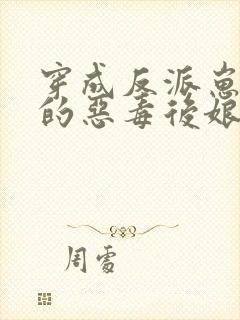 穿成反派崽
的惡毒後娘
周雪